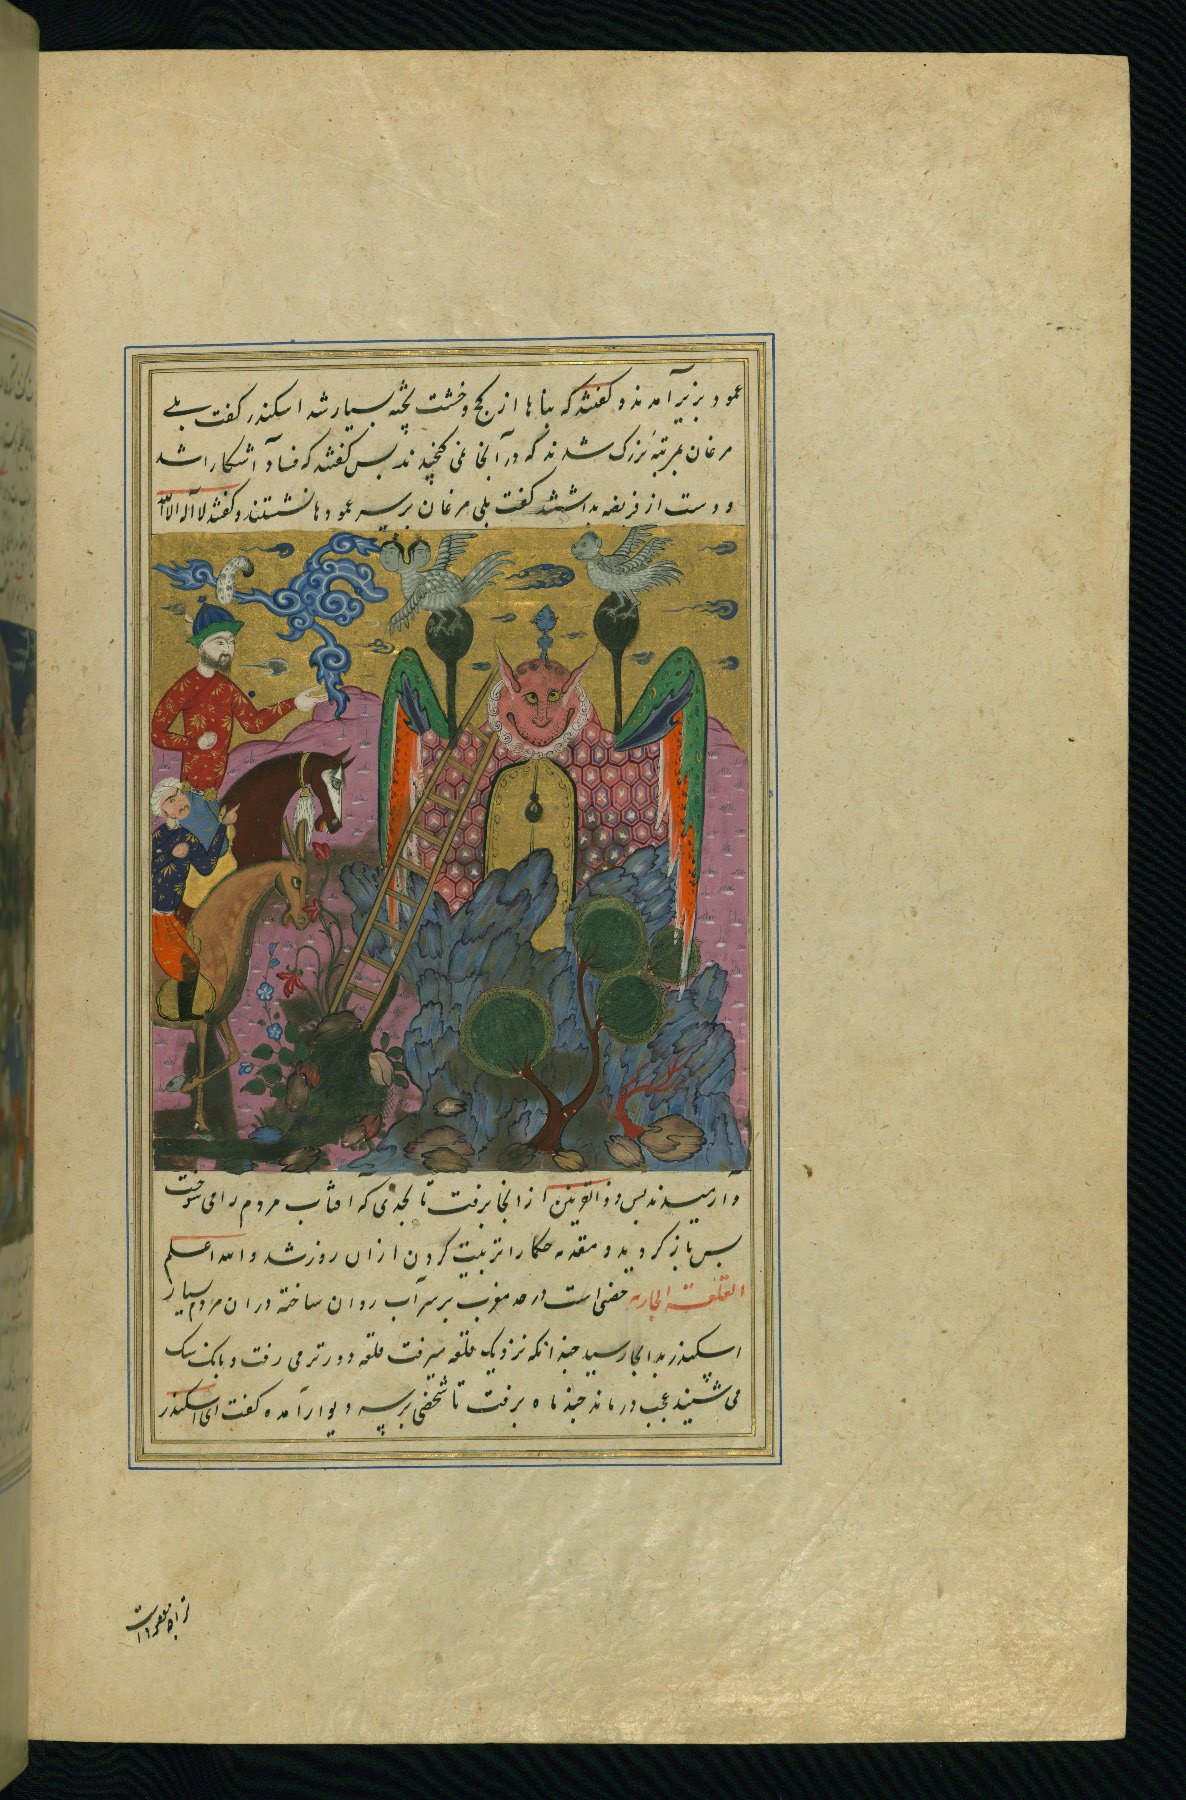 عمود بزیر آمدند و گفتند که بناها از گچ و خشت پخته بسیار شد اسکندر گفت بلی
مرغان بمرتبهٔ بزرگ شدند که در آنجا نمی گنجیدند پس گفتند که فساد آشکارا شد
و دست از فریضه بداشتند گفت بلی مرغان بر سر عمودها نشستند و گفتند لا اله الا الله
و آرمیدند پس ذوالقرنین از انجا برفت تا بحدی که افتاب مردم را می سوخت
پس باز گردید و مقدمه حکما را تربیت کردن ازان روز شد والله اعلم
القلعة الجاریه حصنی است در حد مغرب بر سر آب روان ساخته دران مردم بسیار
اسکندر بدانجا رسید چندانکه نزدیک قلعه میرفت قلعه دورتر می رفت و بانک سک
می شنیند عجب درماند چند ماه برفت تا شخصی بر سر دیوار آمده گفت ای اسکندر